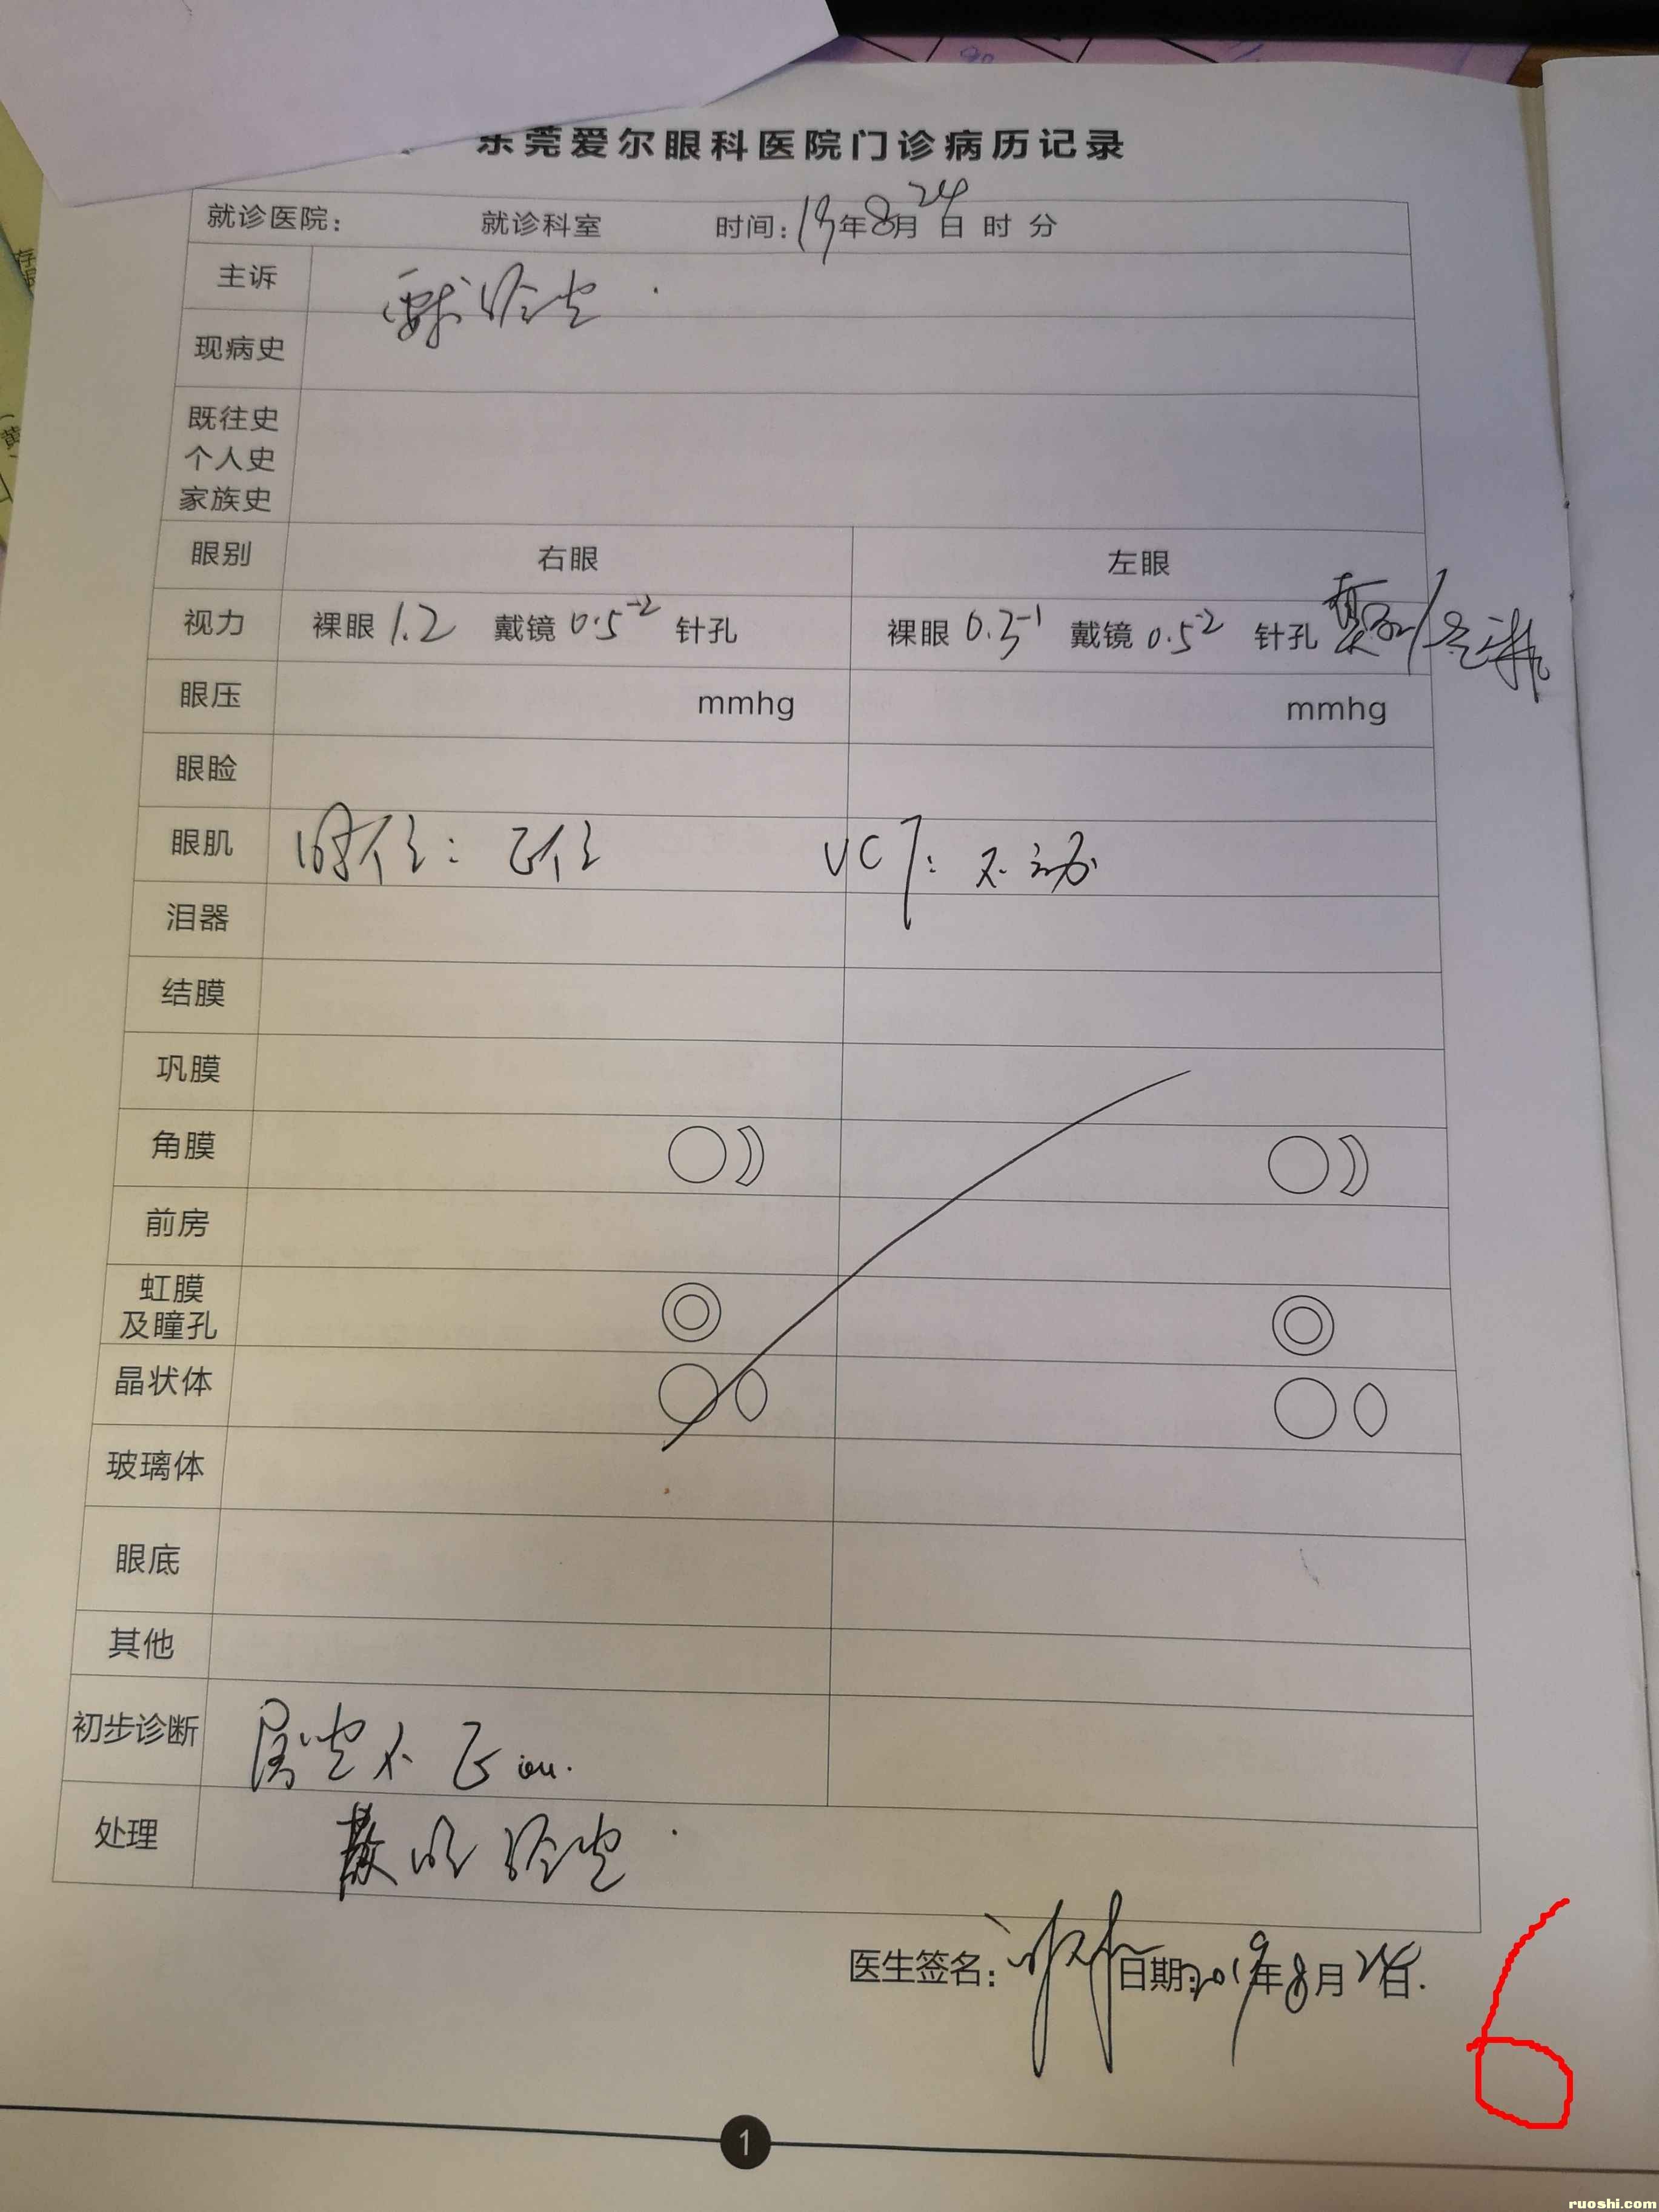 东莞爱尔眼科医院门诊病历记录
就诊医院: 就诊科室 时间:19年8月24日 时 分
主诉 要求验光.
现病史
既往史
个人史
家族史
眼别 右眼 左眼
视力 裸眼 1.2 戴镜 0.5⁻² 针孔 裸眼 0.3⁻¹ 戴镜 0.5⁻² 针孔
眼压 mmhg mmhg
眼睑
眼肌 眼位: 正位 UCT: 不动
泪器
结膜
巩膜
角膜
前房
虹膜
及瞳孔
晶状体
玻璃体
眼底
其他
初步诊断 屈光不正 ou.
处理 散瞳验光.
医生签名: 日期:2019年8月24日.
6
1
ruoshi.com